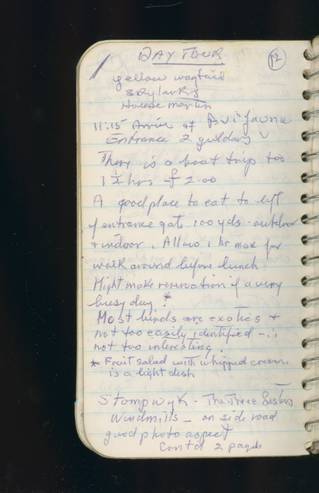 DAY TOUR
12
yellow wagtail
skylarks
House martin
11:15 Arrive at Avifauna
Entrance 2 guilders
There is a boat trip too
1½ hrs f 2.00
A good place to eat to left
of entrance gate 100 yds. outdoor
+ indoor. Allow 1 hr max for
walk around before lunch
Might make reservation if a very
busy day! *
Most birds are exotics +
not too easily identified - ..
not too interesting.
* Fruit salad with whipped cream
is a light dish
Stompwyk - The Three Sisters
Windmills - on side road
good photo aspect
Contd 2 pages